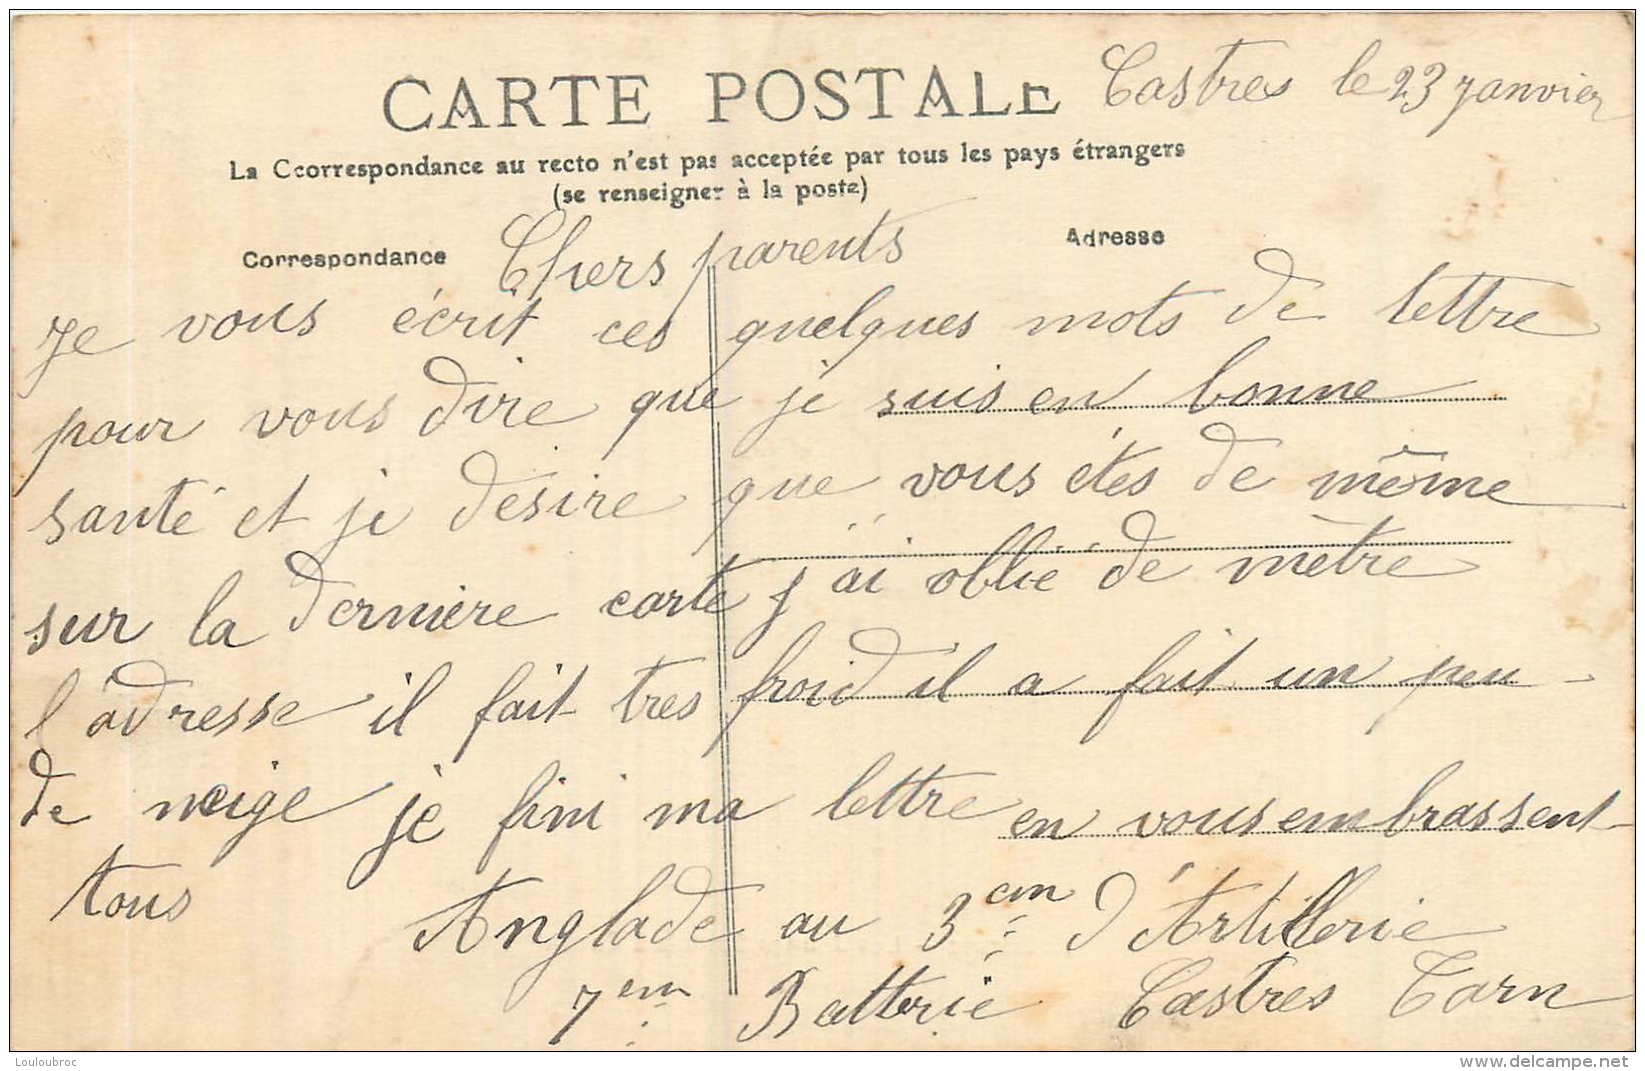 CARTE POSTALE
Castres le 23 Janvier
La Ccorrespondance au recto n'est pas acceptée par tous les pays étrangers
(se renseigner à la poste)
Correspondance
Adresse
Chers parents
Je vous écrit ces quelques mots de lettre
pour vous dire que je suis en bonne
santé et je desire que vous étes de même
sur la dernière carte j'ai oblié de mètre
l'adresse il fait tres froid il a fait un peu
de neige je fini ma lettre en vous embrassent
tous
Anglade au 3em d'Artillerie
7em Batterie Castres Tarn
Louloubroc
delcampe.net